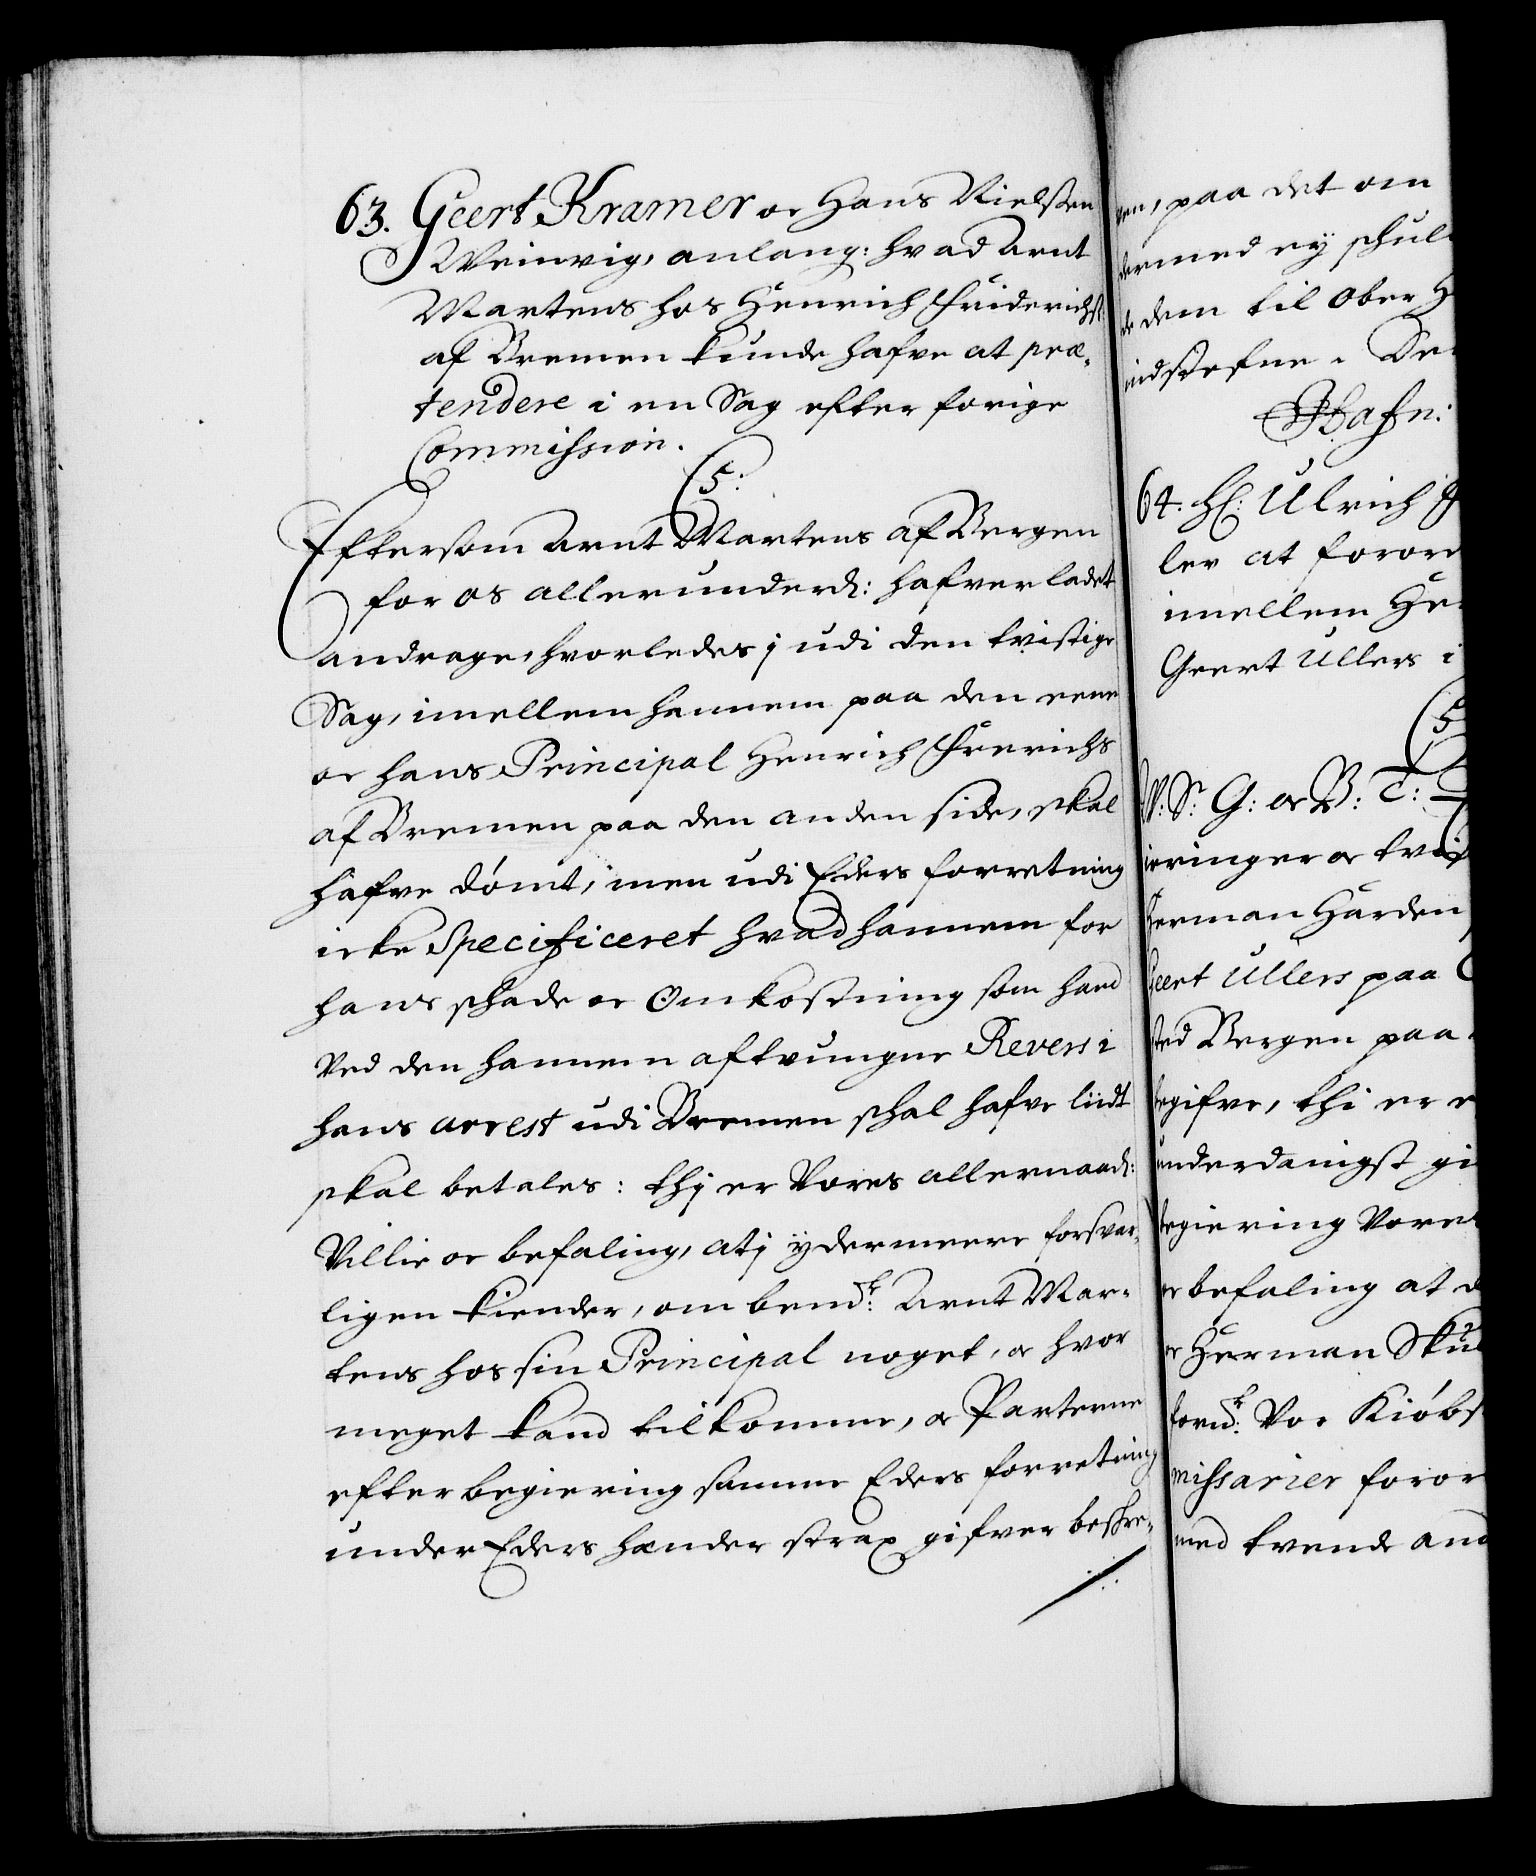 63. Geert Kramer oc Hans Nielssen
Weinvig, anlang: hvad Arnt
Martens hos Henrich Friderichs
af Bremen kunde hafve at præ-
tendere i en Sag efter forige
Commission.
C5:
Eftersom Arnt Martens af Bergen
for os allerunderd: hafver ladet
andrage, hvorledes j udi den tvistige
Sag, imellem hannem paa den eene
oc hans Principal Henrich Frerichs
af Bremen paa den anden side, skal
hafve dómt, men udi Eders forretning
icke Specificeret hvad hannem for
hans schade oc Omkostning som hand
ved den hannem aftvungne Revers i
hans arrest udi Bremen schal hafve liidt
skal betales: thj er Vores allernaad:
Villie oc befaling, at j ydermeere forsvar-
ligen kiender, om bemd:te Arnt Mar-
tens hos sin Principal noget, oc hvor
meget kand tilkomme, oc Parterne
efter begiering samme Eders forretning
under Eders hænder strax gifver beskre-
paa det om
ermed ey schul
dem til Ober H
indstefne. De
Hafn:
64. Hl: Ulrich
ler at foror
imellem He
Geert Ullers i
C5
W. S: G: oc B: T:
eringer oc tvi
Herman Harden
Geert Ullers paa
sted Bergen paa
begifve, thi er e
underdanigst gi
begiering Vores
oc befaling at
oc Herman Sku
ford:te Vor Kióbs
missarier foror
med tvende and